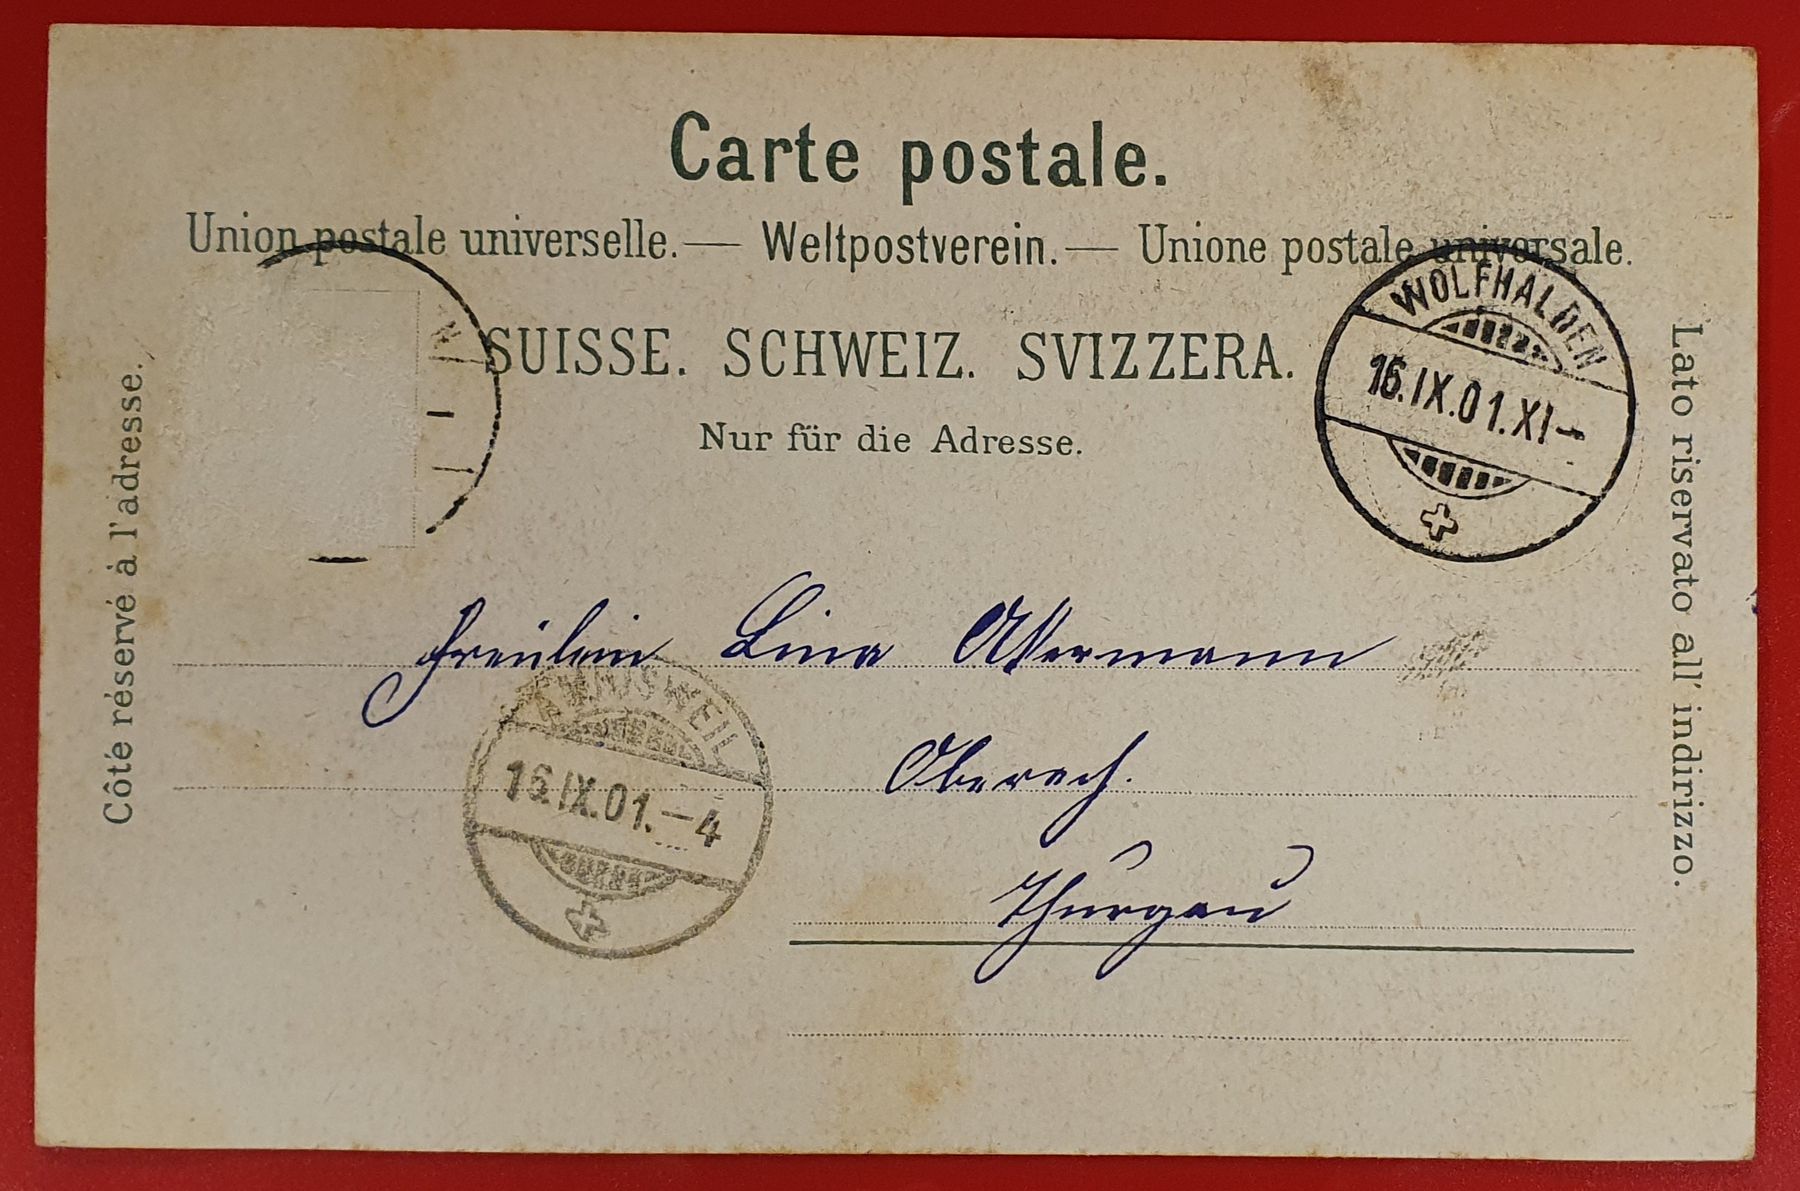 Carte postale.
Union postale universelle. — Weltpostverein. — Unione postale universale.
SUISSE. SCHWEIZ. SVIZZERA.
Nur für die Adresse.
Côté réservé à l'adresse.
Lato riservato all' indirizzo.
N
WOLFHALDEN
16.IX.01.XI–
Fräulein Lina Akermann
Oberach.
Thurgau
SWEIL
16.IX.01.–4